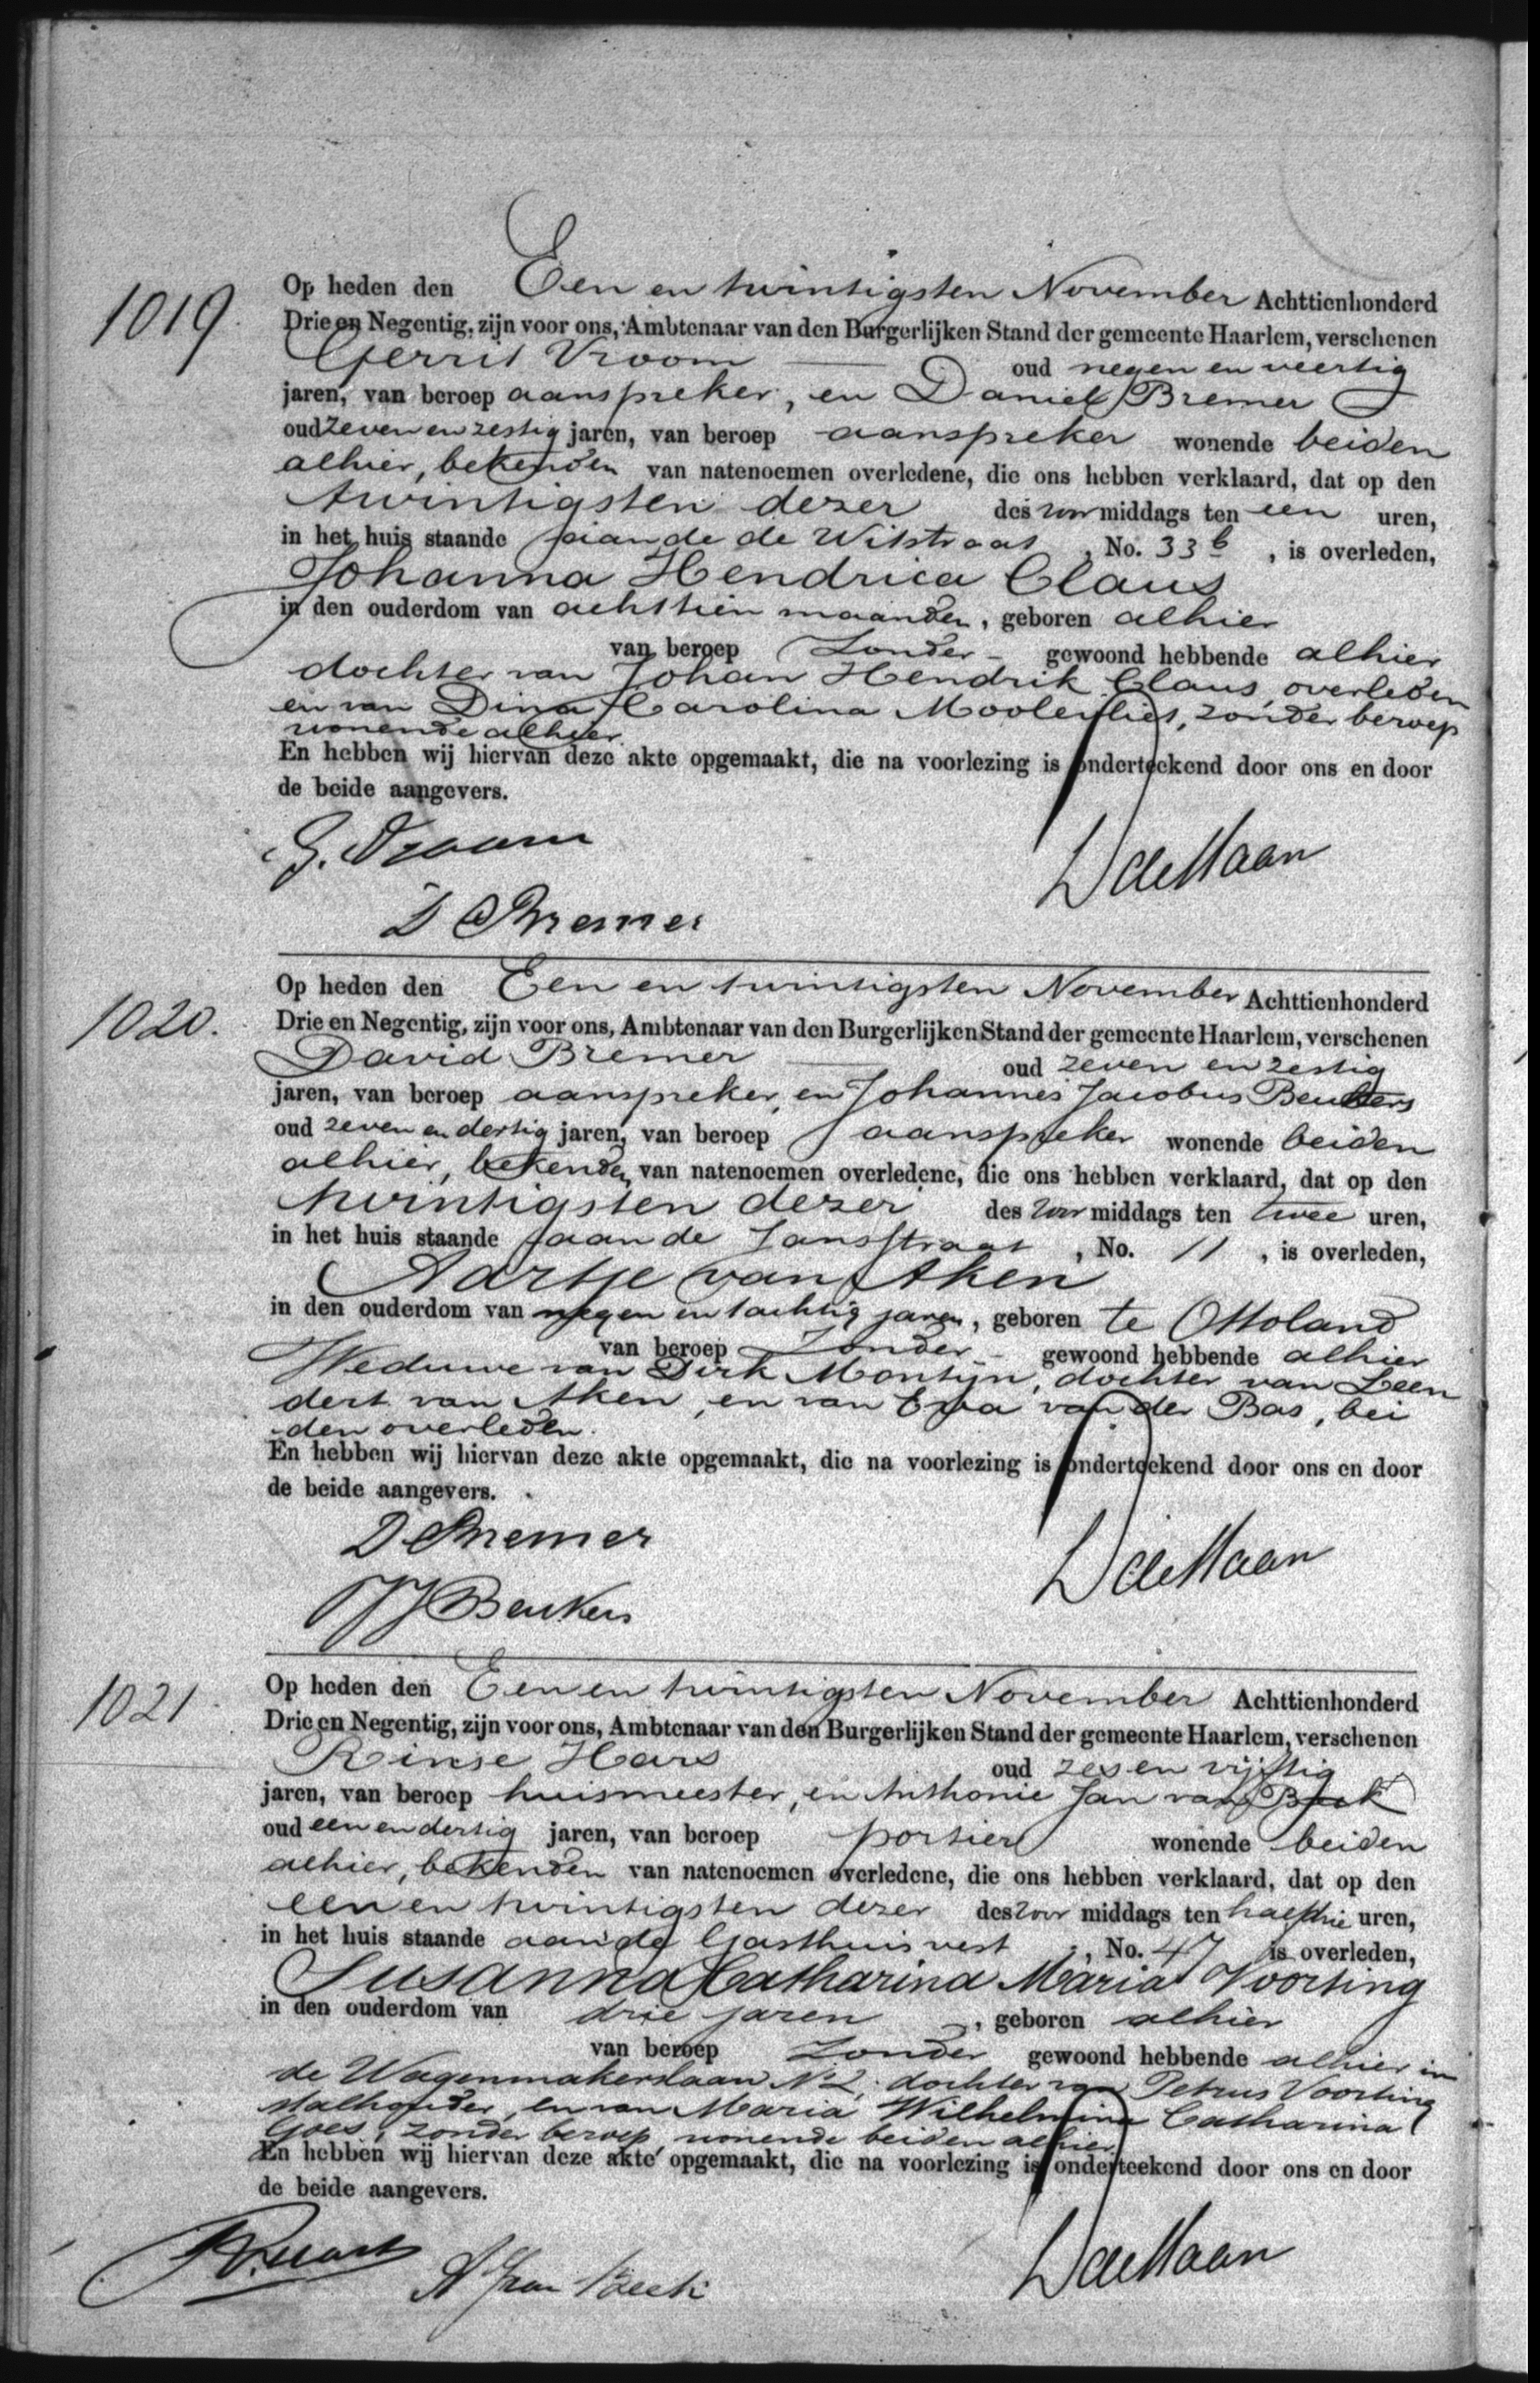 1019.
Op heden den Een en twintigsten November Achttienhonderd
Drie en Negentig, zijn voor ons, Ambtenaar van den Burgerlijken Stand der gemeente Haarlem, verschenen
Gerrit Vroom oud negen en veertig
jaren, van beroep aanspreker, en Daniel Bremer
oud zeven en zestig jaren, van beroep aanspreker wonende beiden
alhier, bekenden van natenoemen overledene, die ons hebben verklaard, dat op den
twintigsten dezer des voor middags ten een uren,
in het huis staande aan de de Witstraat, No. 33 b, is overleden,
Johanna Hendrica Claus
in den ouderdom van achttien maanden, geboren alhier
van beroep Zonder - gewoond hebbende alhier
dochter van Johan Hendrik Claus, overleden
en van Dina Carolina Moolenvliet, zonder beroep
wonende alhier.
En hebben wij hiervan deze akte opgemaakt, die na voorlezing is onderteekend door ons en door
de beide aangevers.
G. Vroom
D de Haan
D Bremer
1020.
Op heden den Een en twintigsten November Achttienhonderd
Drie en Negentig, zijn voor ons, Ambtenaar van den Burgerlijken Stand der gemeente Haarlem, verschenen
David Bremer oud zeven en zestig
jaren, van beroep aanspreker, en Johannes Jacobus Beukers
oud zeven en dertig jaren, van beroep aanspreker wonende beiden
alhier, bekenden van natenoemen overledene, die ons hebben verklaard, dat op den
twintigsten dezer des voor middags ten twee uren,
in het huis staande aan de Jansstraat, No. 11, is overleden,
Aartje van Aken
in den ouderdom van negen en tachtig jaren, geboren te Ottoland
van beroep Zonder - gewoond hebbende alhier
Weduwe van Dirk Montijn, dochter van Leen
dert van Aken, en van Eva van der Bas, bei
den overleden.
En hebben wij hiervan deze akte opgemaakt, die na voorlezing is onderteekend door ons en door
de beide aangevers.
D Bremer
D de Haan
JJ Beukers
1021
Op heden den Een en twintigsten November Achttienhonderd
Drie en Negentig, zijn voor ons, Ambtenaar van den Burgerlijken Stand der gemeente Haarlem, verschenen
Rinse Hars oud zes en vijftig
jaren, van beroep huismeester, en Anthonie Jan van Beek
oud een en dertig jaren, van beroep portier wonende beiden
alhier, bekenden van natenoemen overledene, die ons hebben verklaard, dat op den
een en twintigsten dezer des voor middags ten half drie uren,
in het huis staande aan de Gasthuisvest, No. 47 is overleden,
Susanna Catharina Maria Voorting
in den ouderdom van drie jaren, geboren alhier
van beroep Zonder gewoond hebbende alhier in
de Wagenmakerslaan No 2, dochter van Petrus Voorting
stalhouder, en van Maria Wilhelmina Catharina
Goes, zonder beroep, wonende beiden alhier.
En hebben wij hiervan deze akte opgemaakt, die na voorlezing is onderteekend door ons en door
de beide aangevers.
R. Hars
A J van Beek
D de Haan